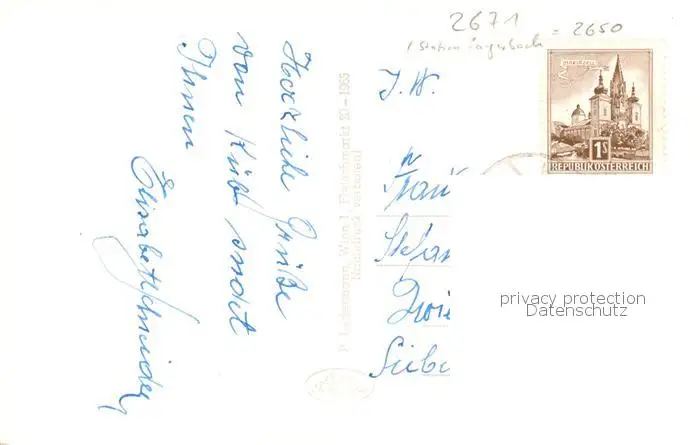 2671
1 Station Payerbach = 2650
Herzliche Grüße
von Küb sendet
Ihnen
Elisabeth Schneider
P. Ledermann, Wien I, Fleischmarkt 20 – 1965
Nachdruck verboten!
I. H.
Frau
Stefan
Sieb
MARIAZELL
1 S
REPUBLIK ÖSTERREICH
privacy protection
Datenschutz